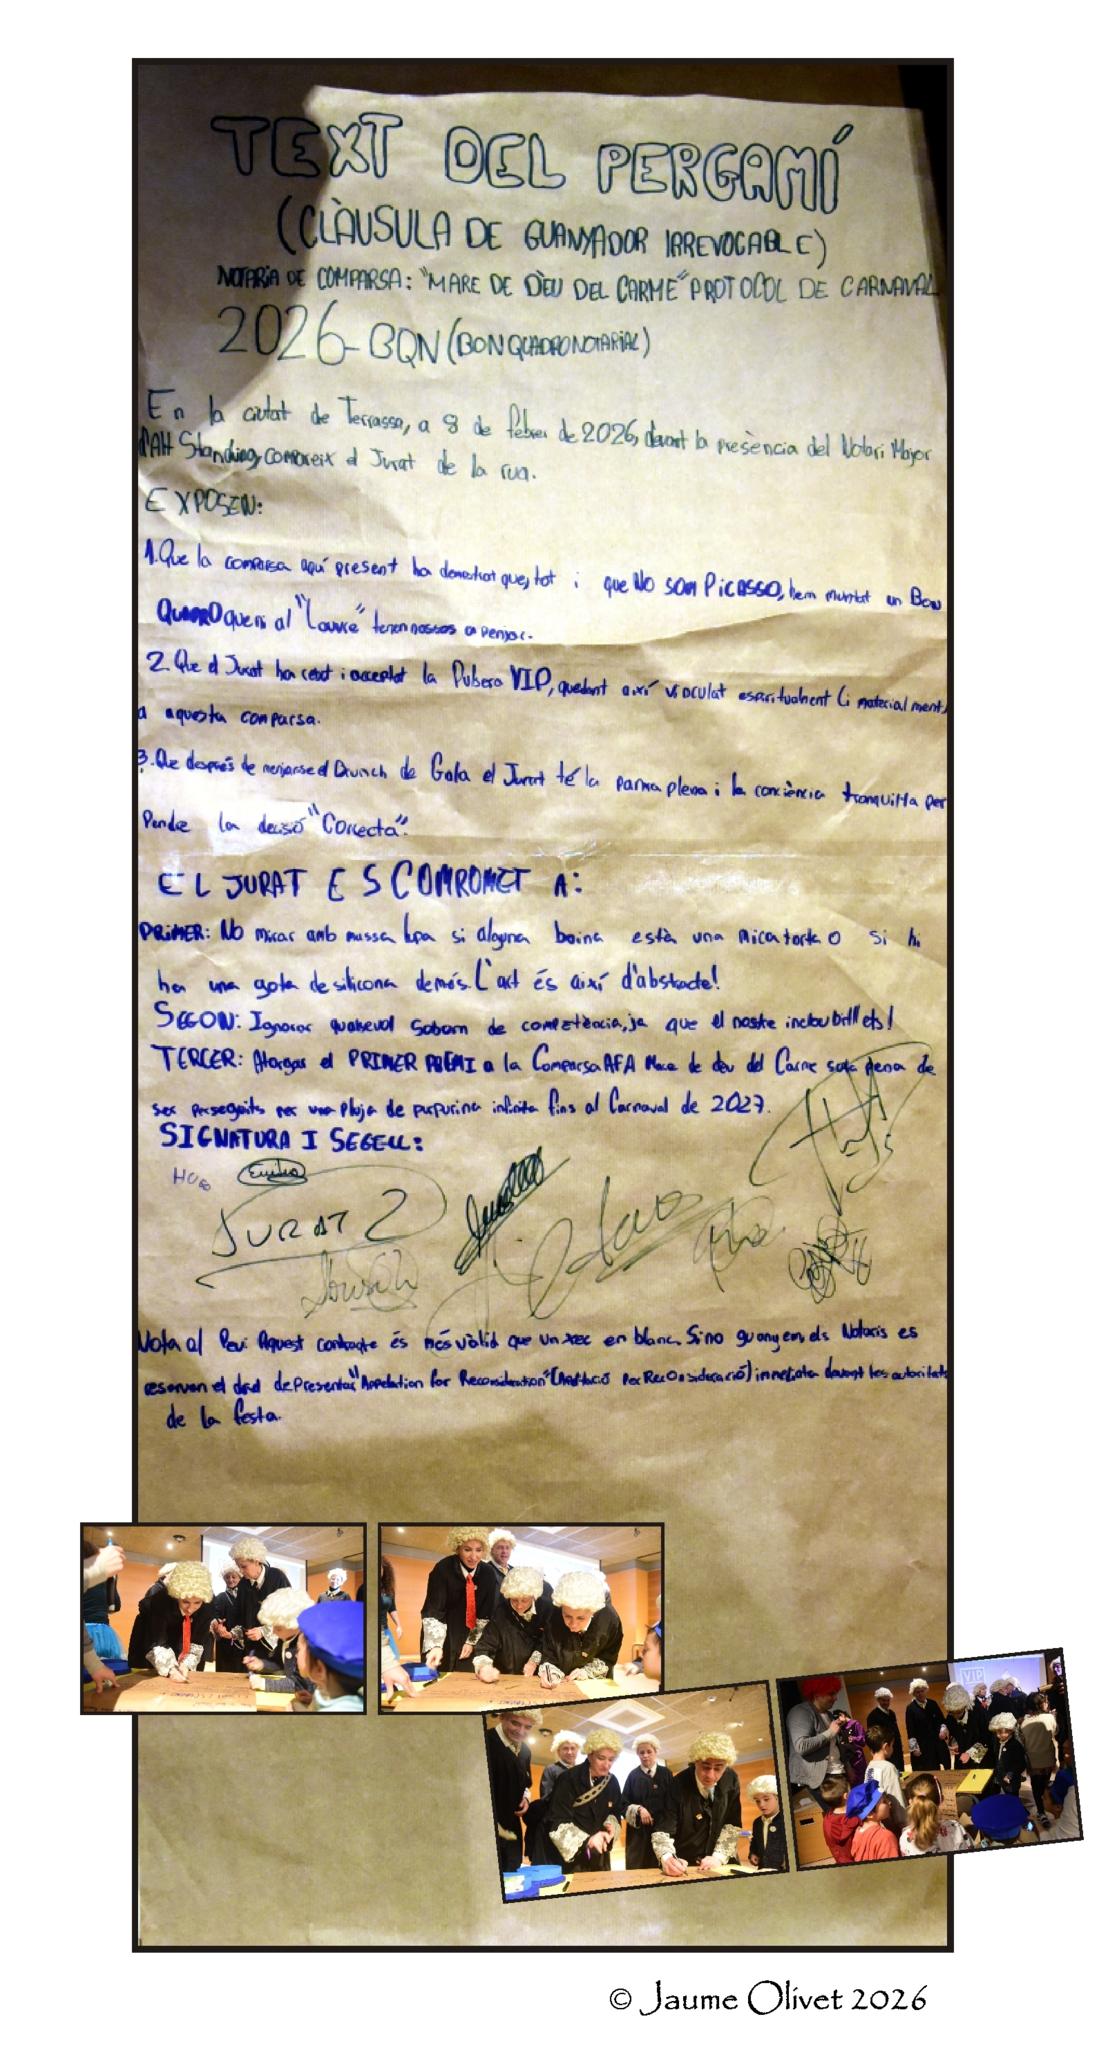 TEXT DEL PERGAMÍ
(CLÀUSULA DE GUANYADOR IRREVOCABLE)
NOTARIA DE COMPARSA: "MARE DE DÈU DEL CARME" PROTOCOL DE CARNAVAL
2026-BQN (BON QUADRO NOTARIAL)
En la ciutat de Terrassa, a 8 de febrer de 2026, davant la presència del Notari Major
d'Alt Standing, compareix el Jurat de la rua.
EXPOSEN:
1. Que la comparsa aquí present ha demostrat que, tot i que No SOM PiCASSO, hem muntat un Bon
QUADRO que ni al "Louvre" tenen nassos a penjar.
2. Que el Jurat ha rebut i acceptat la Pulsera VIP, quedant així vinculat espiritualment (i materialment)
a aquesta comparsa.
3. Que després de menjarse el Brunch de Gala el Jurat té la panxa plena i la conciència tranquil·la per
Pendre la decisió "Correcta".
EL JURAT ES COMPROMET A:
PRiMER: No mirar amb massa lupa si alguna boina està una mica torta o si hi
ha una gota de silicona demés. L'art és així d'abstracte!
SEGON: Ignorar qualsevol soborn de competència, ja que el nostre inclou bitllets!
TERCER: Atorgar el PRIMER PREMI a la Comparsa AFA Mare de deu del Carme sota pena de
ser perseguits per una pluja de purpurina infinita fins al Carnaval de 2027.
SIGNATURA I SEGELL:
HUG Emilia
JURAT 2
Nota al Peu: Aquest contracte és més vàlid que un xec en blanc. Si no guanyem, els Notaris es
reserven el dret de presentar "Appelation for Reconsideration" (Apel·lació per Reconsideració) inmediata davant les autoritats
de la festa.
VIP
© Jaume Olivet 2026